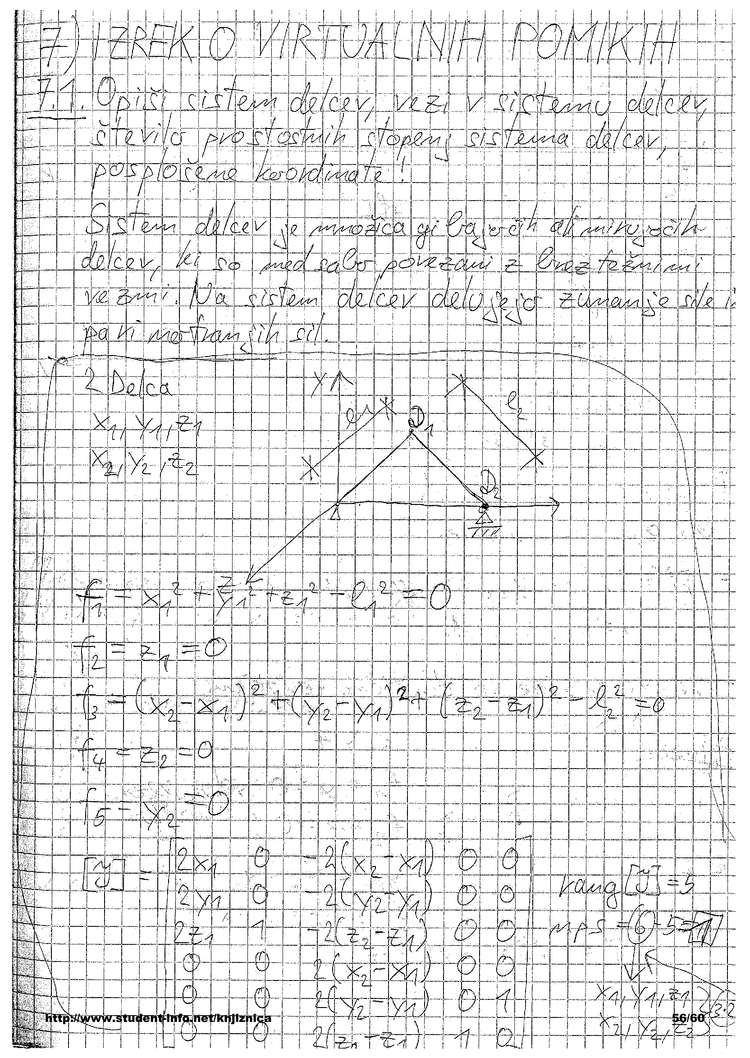 7) IZREK O VIRTUALNIH POMIKIH
7.1. Opiši sistem delcev, vezi v sistemu delcev,
število prostostnih stopenj sistema delcev,
posplošene koordinate!
Sistem delcev je množica gibajočih ali mirujočih
delcev, ki so med sabo povezani z breztežnimi
vezmi. Na sistem delcev delujejo zunanje sile in
pari notranjih sil.
2 Delca
x₁, y₁, z₁
x₂, y₂, z₂
Y
l₁
D₁
l₂
D₂
z
f₁ = x₁² + y₁² + z₁² - l₁² = 0
f₂ = z₁ = 0
f₃ = (x₂ - x₁)² + (y₂ - y₁)² + (z₂ - z₁)² - l₂² = 0
f₄ = z₂ = 0
f₅ = y₂ = 0
[J] =
2x₁ 0 -2(x₂-x₁) 0 0
2y₁ 0 -2(y₂-y₁) 0 0
2z₁ 1 -2(z₂-z₁) 0 0
0 0 2(x₂-x₁) 0 0
0 0 2(y₂-y₁) 0 1
0 0 2(z₂-z₁) 1 0
rang [J] = 5
nps = 6 - 5 = 1
x₁, y₁, z₁
x₂, y₂, z₂ } 3·2
http://www.student-info.net/knjiznica
56/60